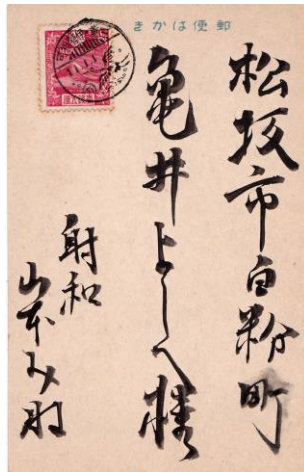 郵便はかき
松坂市白粉町
亀井よしへ様
射和
山本み